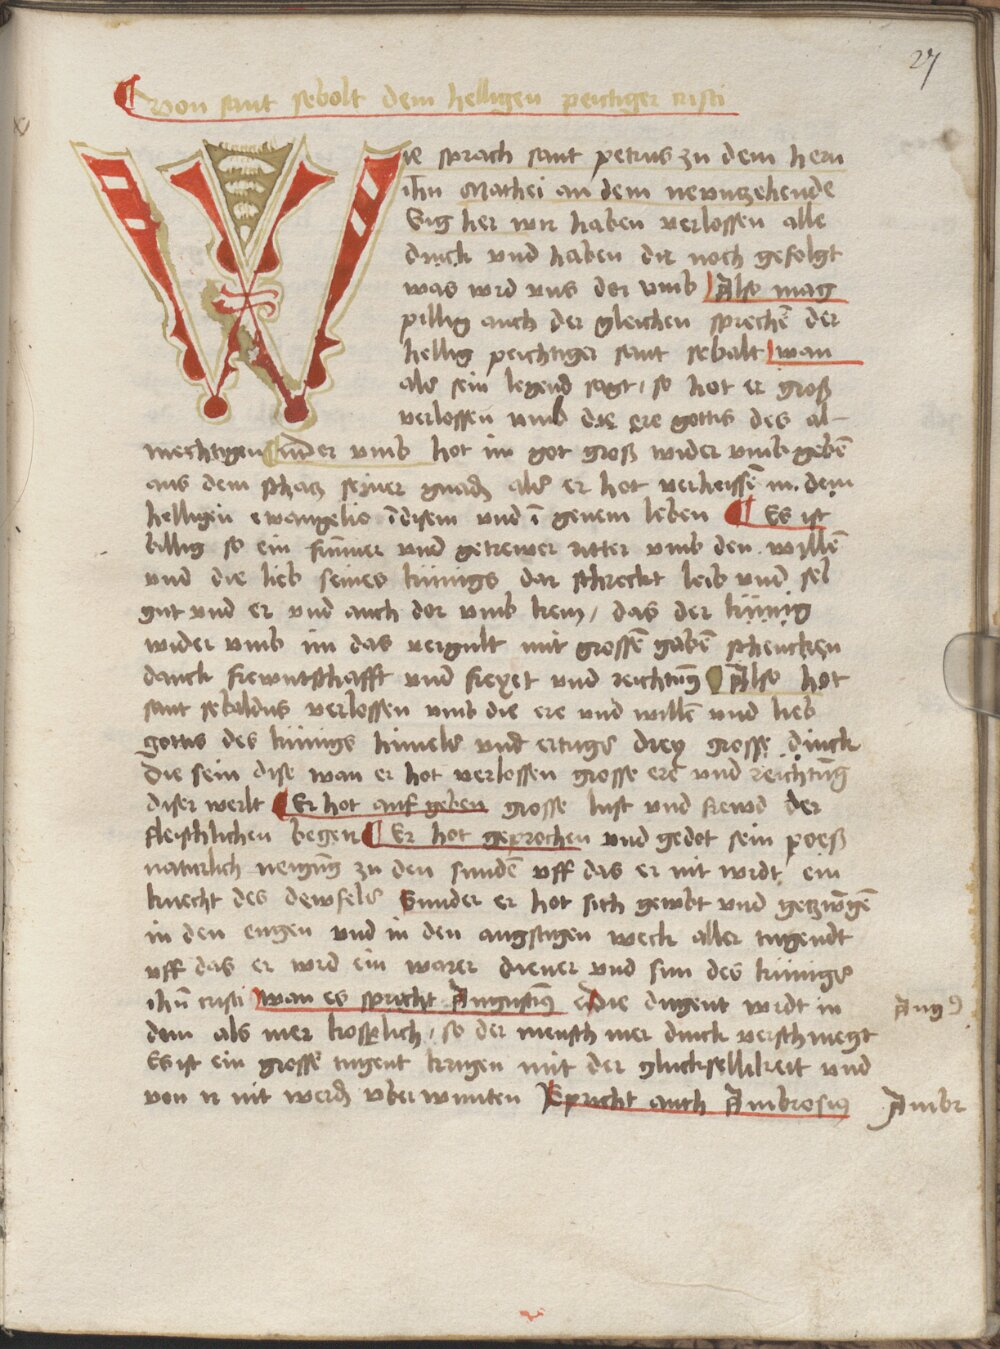 27
von sant sebolt dem helligen peichtiger cristi
Wie sprach sant petrus zu dem hern
ihu Mathei an dem newnzehende
Sig her wir haben verlossen alle
dinck und haben dir noch gefolgt
was wird uns dor umb Also mag
pillig auch der gleichen sprechē der
hellig peichtiger sant sebalt wan
als sein legend sagt, so hot er groß
verlossen umb die ere gottis des al-
mechtigen under umb hot im got groß wider umb gebē
aus dem schatz seiner gnadē als er hot verheissē in dem
helligen ewangelio ī disem und ī genem leben Es ist
billig so ein frūmer und getrewer ritter umb den willē
und die lieb seines künigs dar schreckt leib und sel
gut und er und auch dor umb kem, das der künig
wider umb im das vergult mit grossē gabē schencken
danck frewntschafft und freyet und reichtūg Also hot
sant sebaldus verlossen umb die ere und willē und lieb
gottis des künigs himels und ertrigs drey grosse dinck
die sein dise wan er hot verlossen grosse ere und reichtūg
diser werlt Er hot auf geben grosse lust und frewd der
fleischlichen begert Er hot geprochen und gedot sein poeß
naturlich neigūg zu den sundē uff das er nit wirdt ein
knecht des dewfels Sunder er hot sich gewbt und getzwūgē
in den engen und in den angstigen weck aller tugendt
uff das er wird ein warer diener und sun des künigs
ihū cristi wan es spricht Augustin9 Die dugent wirdt in
dem als mer kosplich, so der mensch mer dinck verschmegt
Es ist ein grosse tugent krigen mit der gluckselikeit und
von ir nit werdē uberwunten Spricht auch Ambrosi9
Aug9
Ambr